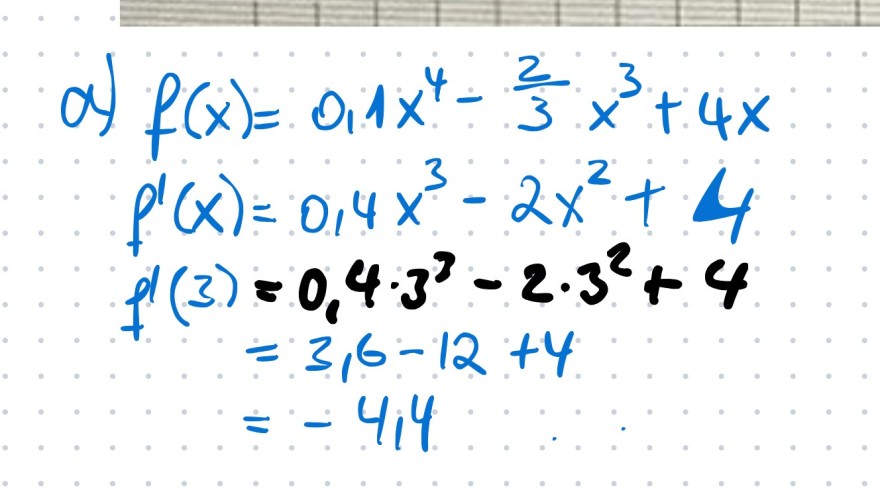 a) f(x) = 0,1x⁴ - 2/3 x³ + 4x
f'(x) = 0,4x³ - 2x² + 4
f'(3) = 0,4·3³ - 2·3² + 4
= 3,6 - 12 + 4
= - 4,4